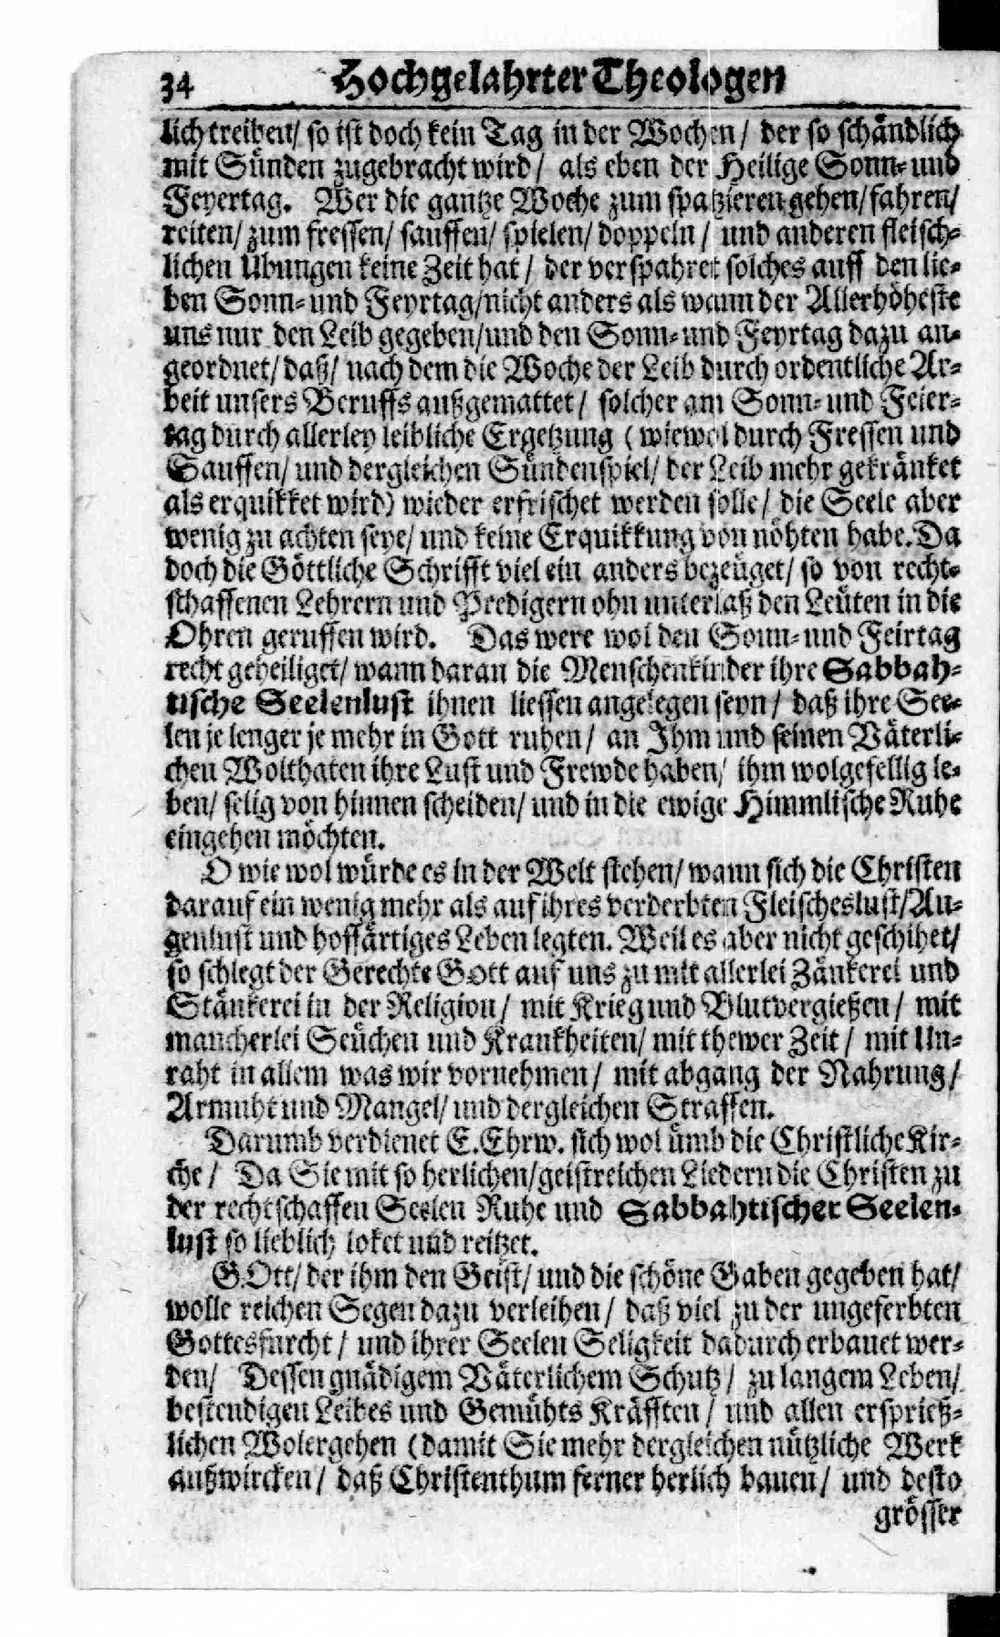 34 Hochgelahrter Theologen
lich treiben/ so ist doch kein Tag in der Wochen/ der so schändlich
mit Sünden zugebracht wird/ als eben der Heilige Sonn- und
Feyertag. Wer die gantze Woche zum spatzieren gehen/ fahren/
reiten/ zum fressen/ sauffen/ spielen/ doppeln/ und anderen fleisch-
lichen Ubungen keine Zeit hat/ der verspahret solches auff den lie-
ben Sonn- und Feyrtag/ nicht anders als wann der Allerhöheste
uns nur den Leib gegeben/ und den Sonn- und Feyrtag dazu an-
geordnet/ daß/ nach dem die Woche der Leib durch ordentliche Ar-
beit unsers Beruffs außgemattet/ solcher am Sonn- und Feier-
tag durch allerley leibliche Ergetzung (wiewol durch Fressen und
Sauffen/ und dergleichen Sündenspiel/ der Leib mehr gekränket
als erquikket wird) wieder erfrischet werden solle/ die Seele aber
wenig zu achten seye/ und keine Erquikkung von nöhten habe. Da
doch die Göttliche Schrifft viel ein anders bezeüget/ so von recht-
schaffenen Lehrern und Predigern ohn unterlaß den Leüten in die
Ohren geruffen wird. Das were wol den Sonn- und Feirtag
recht geheiliget/ wann daran die Menschenkinder ihre Sabbah-
tische Seelenlust ihnen liessen angelegen seyn/ daß ihre See-
len je lenger je mehr in Gott ruhen/ an Ihm und seinen Väterli-
chen Wolthaten ihre Lust und Frewde haben/ ihm wolgefellig le-
ben/ selig von hinnen scheiden/ und in die ewige Himmlische Ruhe
eingehen möchten.
O wie wol würde es in der Welt stehen/ wann sich die Christen
darauf ein wenig mehr als auf ihres verderbten Fleischeslust/ Au-
genlust und hoffärtiges Leben legten. Weil es aber nicht geschihet/
so schlegt der Gerechte Gott auf uns zu mit allerlei Zänkerei und
Stänkerei in der Religion/ mit Krieg und Blutvergießen/ mit
mancherlei Seüchen und Krankheiten/ mit thewer Zeit/ mit Un-
raht in allem was wir vornehmen/ mit abgang der Nahrung/
Armuht und Mangel/ und dergleichen Straffen.
Darumb verdienet E. Ehrw. sich wol ümb die Christliche Kir-
che/ Da Sie mit so herlichen/ geistreichen Liedern die Christen zu
der rechtschaffen Seelen Ruhe und Sabbahtischer Seelen-
lust so lieblich loket und reitzet.
GOtt/ der ihm den Geist/ und die schöne Gaben gegeben hat/
wolle reichen Segen dazu verleihen/ daß viel zu der ungeferbten
Gottesfurcht/ und ihrer Seelen Seligkeit dadurch erbauet wer-
den/ Dessen gnädigem Väterlichem Schutz/ zu langem Leben/
bestendigen Leibes und Gemühts Kräfften/ und allen ersprieß-
lichen Wolergehen (damit Sie mehr dergleichen nützliche Werk
außwircken/ daß Christenthum ferner herlich bauen/ und desto
grösser